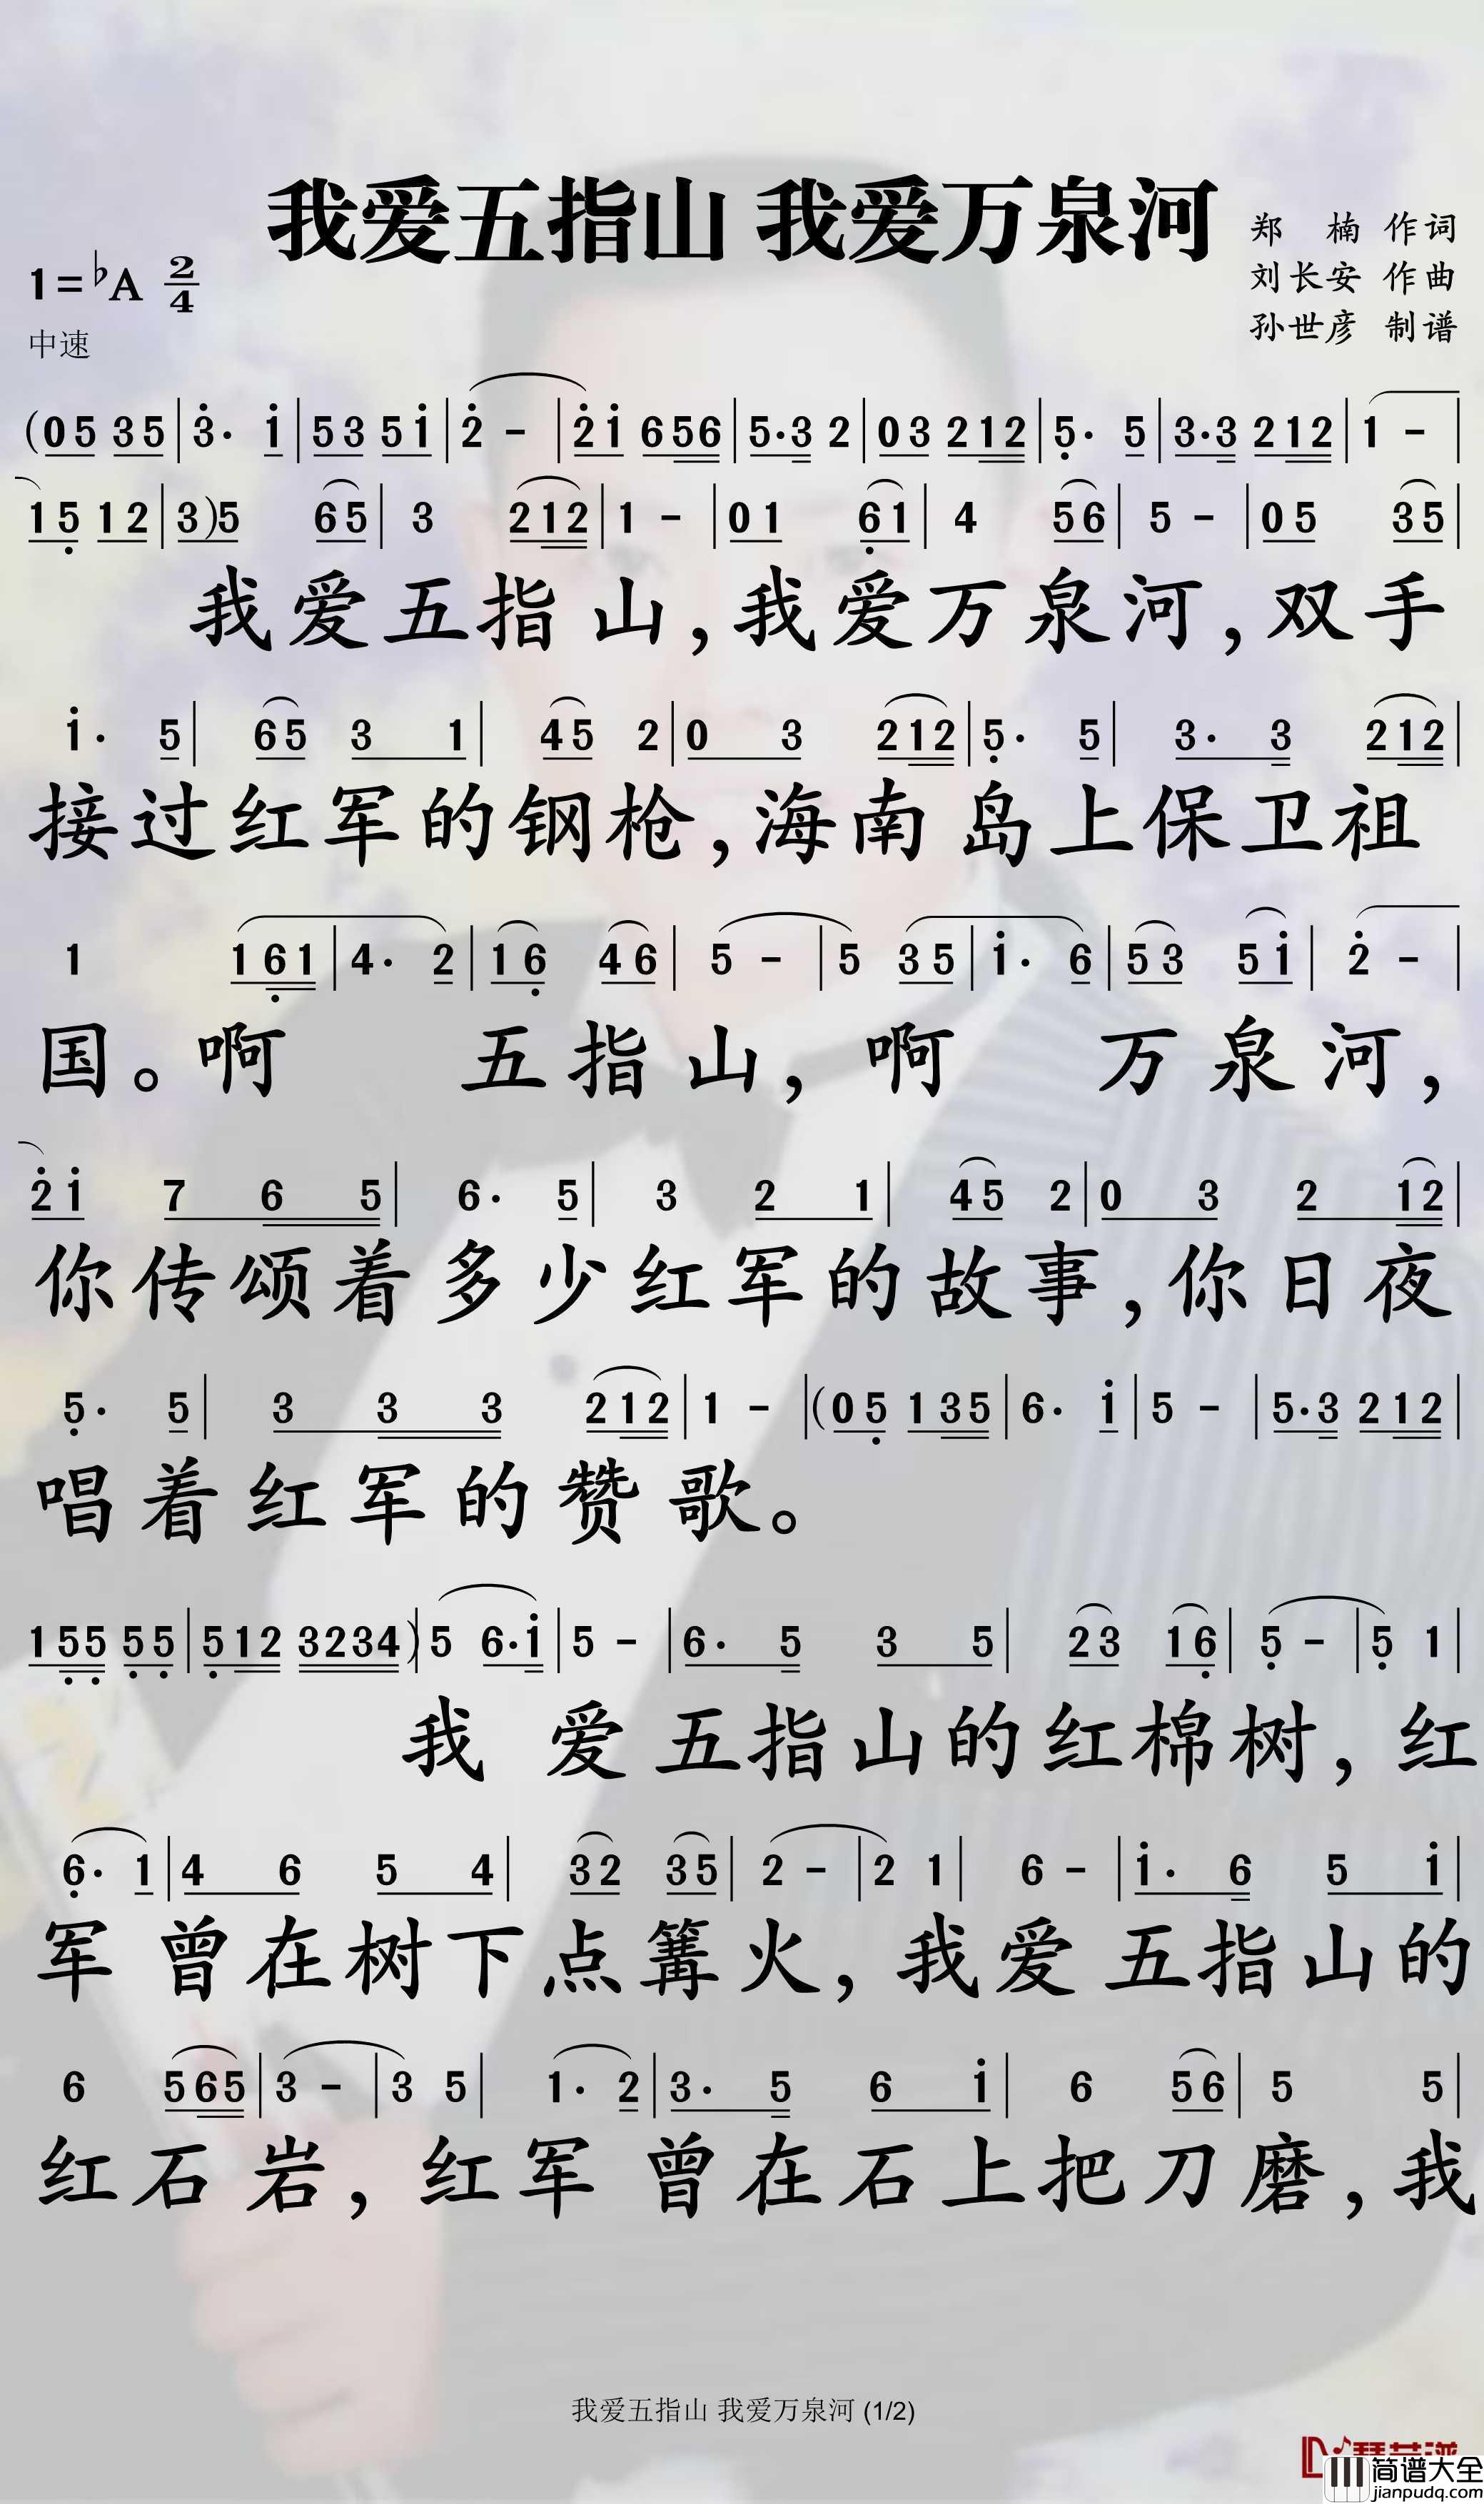 我爱五指山 我爱万泉河
郑 楠 作词
刘长安 作曲
孙世彦 制谱
1=♭A 2/4
中速
(0 5 3 5 | 3̇· 1̇ | 5 3 5 1̇ | 2̇ - | 2̇ 1̇ 6 5 6 | 5·3 2 | 0 3 2 1 2 | 5̣· 5 | 3·3 2 1 2 | 1 - |
1 5̣ 1 2 | 3 )5 6 5 | 3 2 1 2 | 1 - | 0 1 6̣ 1 | 4 5 6 | 5 - | 0 5 3 5 |
我 爱 五 指 山，我 爱 万 泉 河，双 手
1̇· 5 | 6 5 3 1 | 4 5 2 | 0 3 2 1 2 | 5̣· 5 | 3· 3 2 1 2 |
接 过 红 军 的 钢 枪，海 南 岛 上 保 卫 祖
1 1 6̣ 1 | 4· 2 | 1 6̣ 4 6 | 5 - | 5 3 5 | 1̇· 6 | 5 3 5 1̇ | 2̇ - |
国。啊 五 指 山，啊 万 泉 河，
2̇ 1̇ 7 6 5 | 6· 5 | 3 2 1 | 4 5 2 | 0 3 2 1 2 |
你 传 颂 着 多 少 红 军 的 故 事，你 日 夜
5̣· 5 | 3 3 3 2 1 2 | 1 - |(0 5̣ 1 3 5 | 6· 1̇ | 5 - | 5·3 2 1 2 |
唱 着 红 军 的 赞 歌。
1 5̣ 5̣ 5̣ 5̣ | 5̣ 1 2 3 2 3 4 )| 5 6·1̇ | 5 - | 6· 5 3 5 | 2 3 1 6̣ | 5̣ - | 5̣ 1 |
我 爱 五 指 山 的 红 棉 树，红
6̣· 1 | 4 6 5 4 | 3 2 3 5 | 2 - | 2 1 | 6 - | 1̇· 6 5 1̇ |
军 曾 在 树 下 点 篝 火，我 爱 五 指 山 的
6 5 6 5 | 3 - | 3 5 | 1· 2 | 3· 5 6 1̇ | 6 5 6 | 5 5 |
红 石 岩，红 军 曾 在 石 上 把 刀 磨，我
我爱五指山 我爱万泉河 (1/2)
简谱大全
jianpudq.com